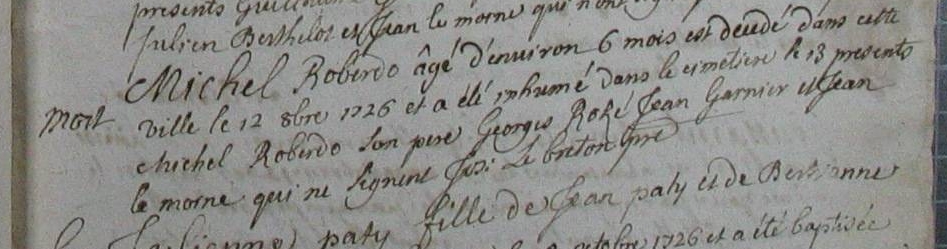 presents
Julien Berthelot et Jean le morne qui n'ont
Michel Roberdo âgé d'environ 6 mois est decedé dans cette
mort ville le 12 8bre 1726 et a été inhumé dans le cimetiere le 13 presents
Michel Roberdo son pere Georges Roké Jean Garnier et Jean
le morne qui ne signent Jos: Le breton pre
Julienne paty fille de Jean paty et de
octobre 1726 et a été baptisée